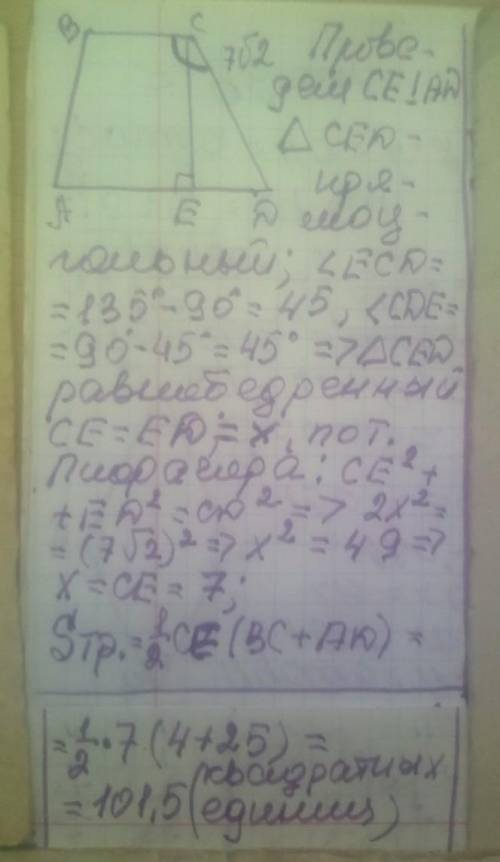 B C 7√2 Прове-
дем CE⊥AD
△CED -
пря-
A E D моу-
гольный; ∠ECD=
=135°-90°=45, ∠CDE=
=90°-45°=45° =>△CED
равнобедренный
CE=ED=x, по т.
Пифагора: CE²+
+ED²=CD² => 2x²=
=(7√2)² => x²=49 =>
x=CE=7;
Sтр.=1/2 CE(BC+AD)=
=1/2·7(4+25)=
=101,5(квадратных
единиц)